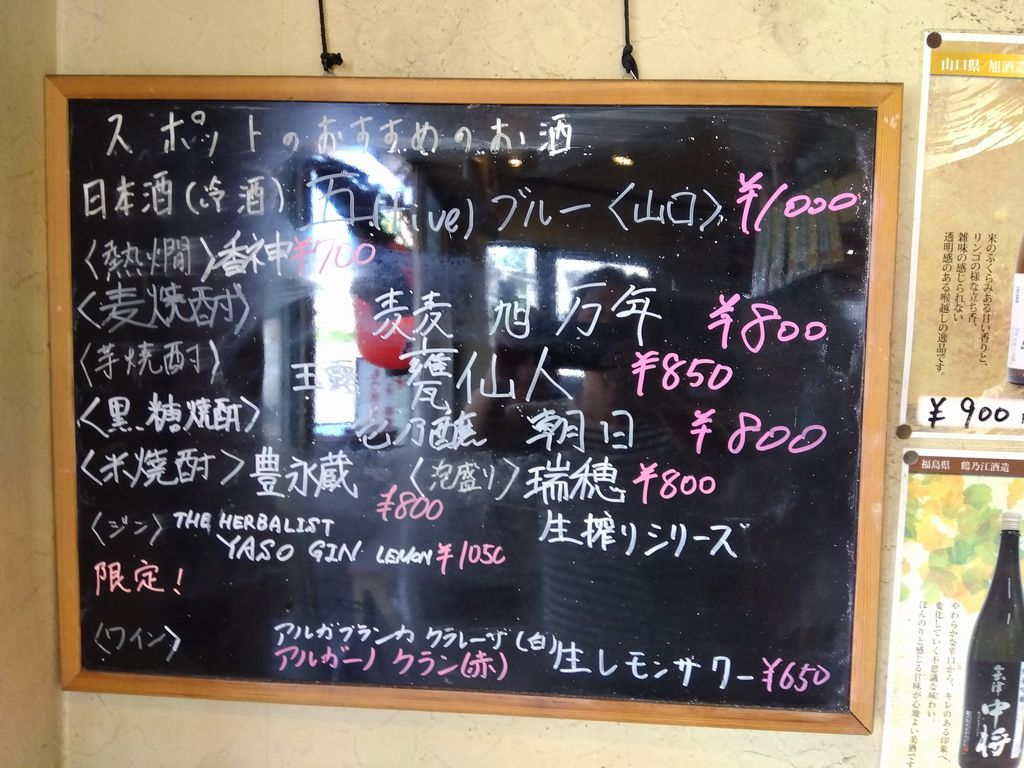 スポットのおすすめのお酒
日本酒(冷酒) 五(five)ブルー〈山口〉¥1000
〈熱燗〉香神¥700
〈麦焼酎〉 麦麦 旭 万年 ¥800
〈芋焼酎〉 玉露 甕仙人 ¥850
〈黒糖焼酎〉 朝日 ¥800
〈米焼酎〉豊永蔵 ¥800 〈泡盛り〉瑞穂 ¥800
〈ジン〉 THE HERBALIST
YASO GIN LEMON ¥1050
生搾りシリーズ
限定!
〈ワイン〉 アルガブランカ クラレーザ(白)
アルガーノ クラン(赤)
生レモンサワー¥650
山口県/旭酒造
米のふくらみある甘い香りと、
リンゴの様な立ち香、
雑味の感じられない
透明感のある喉越しの逸品です。
¥900
福島県 鶴乃江酒造
やわらかな辛口から、キレのある印象へ
変化していく不思議な味わい。
ほんのりと感じる甘味が心地よい美酒です
会津
中将